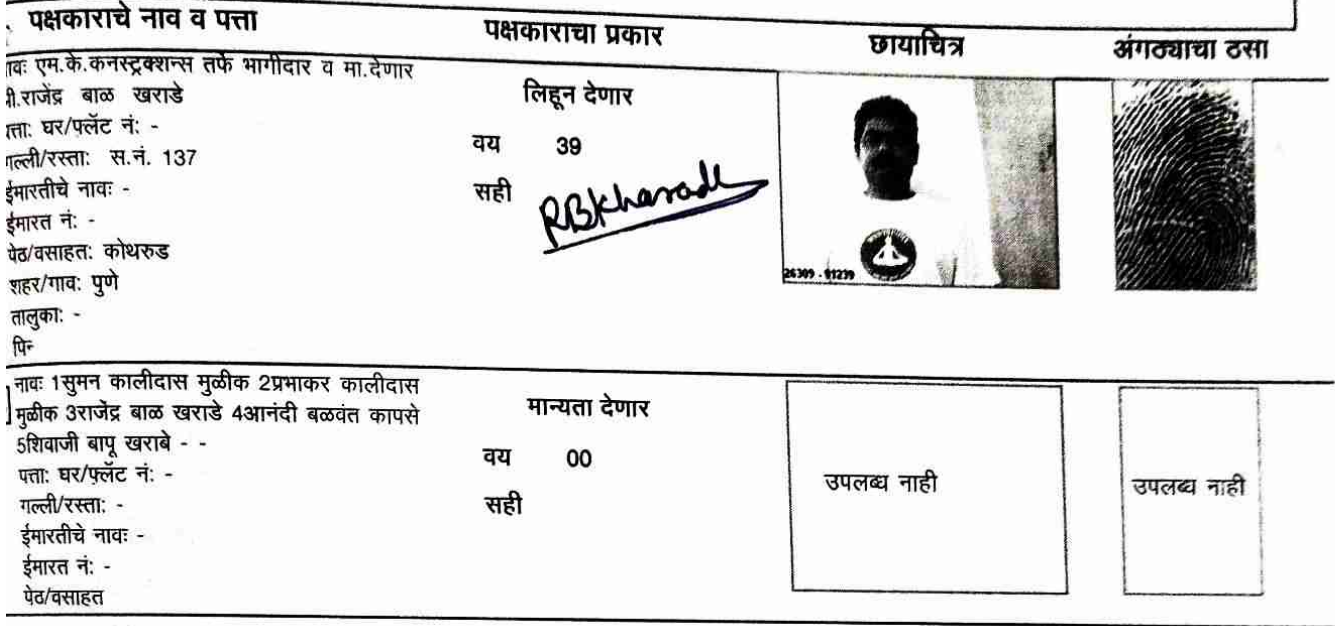 पक्षकाराचे नाव व पत्ता पक्षकाराचा प्रकार छायाचित्र अंगठ्याचा ठसा
नावः एम.के.कनस्ट्रक्शन्स तर्फे भागीदार व मा.देणार
श्री.राजेंद्र बाळ खराडे
पत्ताः घर/फ्लॅट नं: -
गल्ली/रस्ताः स.नं. 137
ईमारतीचे नावः -
ईमारत नं: -
पेठ/वसाहतः कोथरुड
शहर/गावः पुणे
तालुकाः -
पिन
लिहून देणार
वय 39
सही RBKharade
26309 - 91239
नावः 1सुमन कालीदास मुळीक 2प्रभाकर कालीदास
मुळीक 3राजेंद्र बाळ खराडे 4आनंदी बळवंत कापसे
5शिवाजी बापू खराबे - -
पत्ताः घर/फ्लॅट नं: -
गल्ली/रस्ताः -
ईमारतीचे नावः -
ईमारत नं: -
पेठ/वसाहत
मान्यता देणार
वय 00
सही
उपलब्ध नाही
उपलब्ध नाही